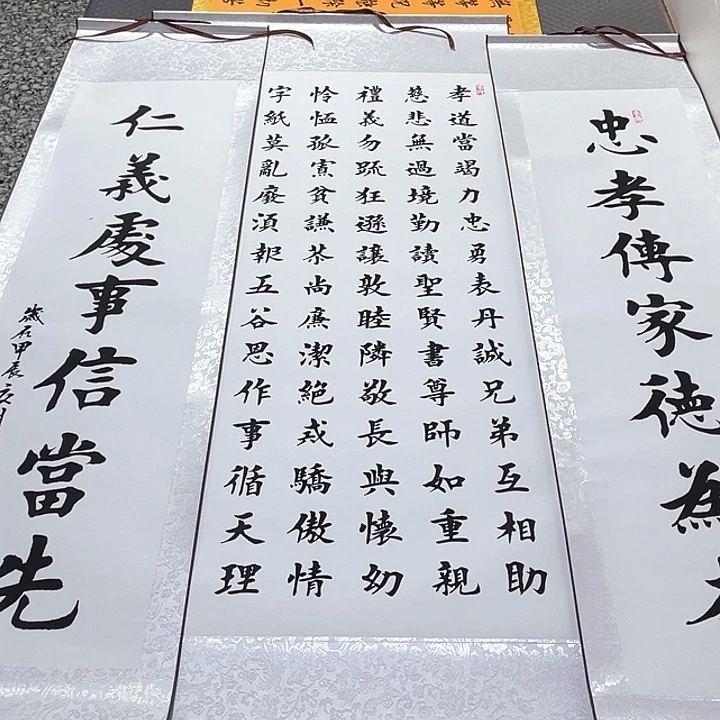 忠孝傳家德為
孝道當竭力忠勇表丹誠兄弟互相助
慈悲無過境勤讀聖賢書尊師如重親
禮義勿疏狂遜讓敦睦隣敬長與懷幼
怜恤孤寡貧謙恭尚廉潔絕戒驕傲情
字紙莫亂廢須報五谷恩作事循天理
仁義處事信當先
歲在甲辰